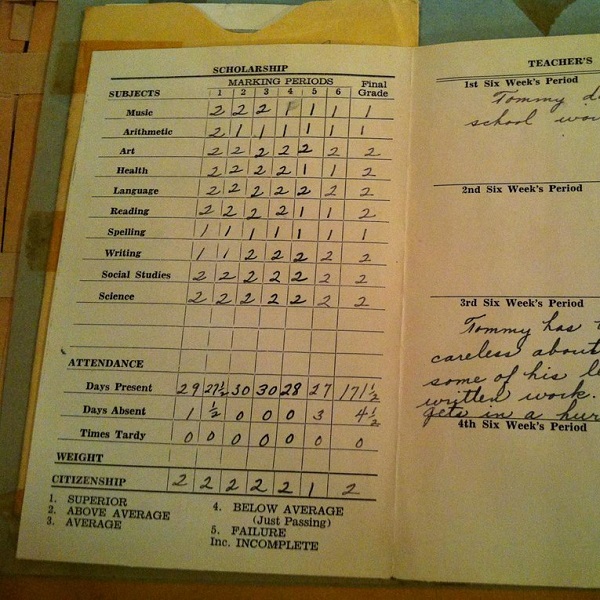 SCHOLARSHIP
MARKING PERIODS
SUBJECTS 1 2 3 4 5 6 Final Grade
Music 2 2 2 1 1 1 1
Arithmetic 2 1 1 1 1 1 1
Art 2 2 2 2 2 2 2
Health 2 2 2 2 1 1 2
Language 2 2 2 2 2 2 2
Reading 2 2 2 2 1 1 2
Spelling 1 1 1 1 1 1 1
Writing 1 1 2 2 2 2 2
Social Studies 2 2 2 2 2 2 2
Science 2 2 2 2 2 2 2
ATTENDANCE
Days Present 29 27½ 30 30 28 27 171½
Days Absent 1 ½ 0 0 0 3 4½
Times Tardy 0 0 0 0 0 0 0
WEIGHT
CITIZENSHIP 2 2 2 2 2 1 2
1. SUPERIOR
2. ABOVE AVERAGE
3. AVERAGE
4. BELOW AVERAGE
(Just Passing)
5. FAILURE
Inc. INCOMPLETE
TEACHER'S
1st Six Week's Period
Tommy
school
2nd Six Week's Period
3rd Six Week's Period
Tommy has
careless about
some of his
written work.
gets in a
4th Six Week's Period